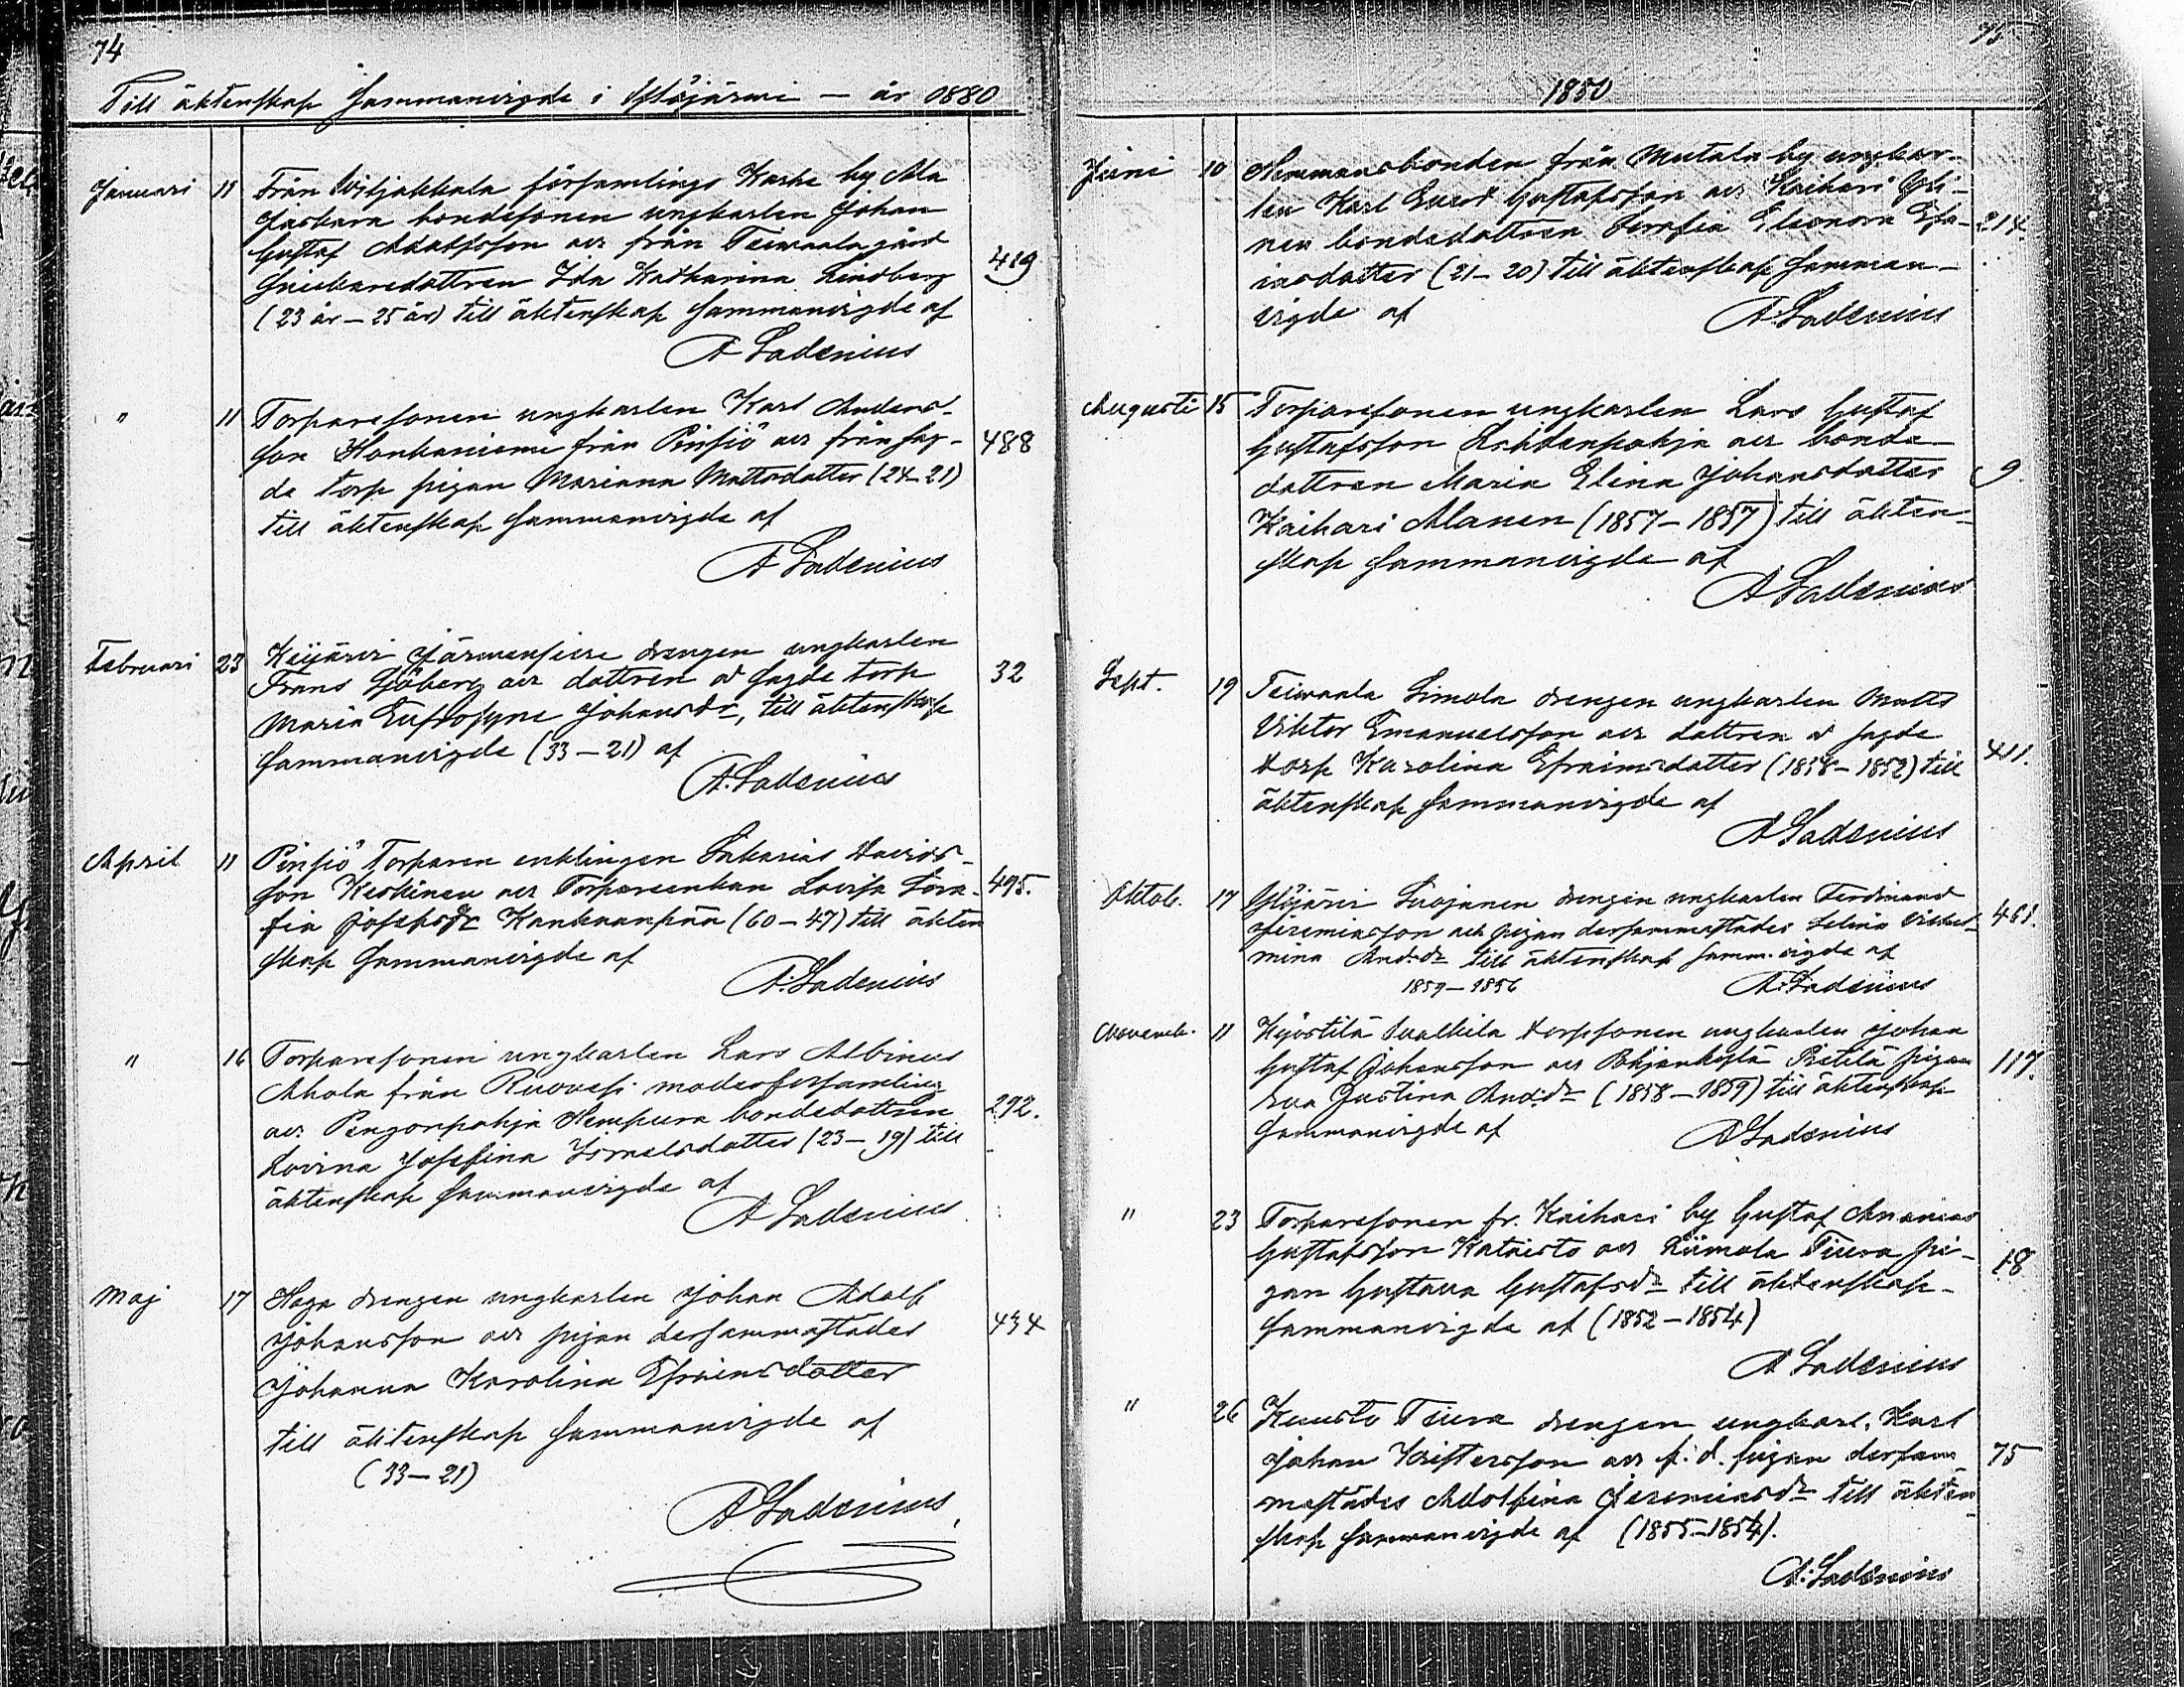 74
Till äktenskap Sammanvigde i Ylöjärvi – år 1880
Januari 11 Från Wiljakkala församlings Karhe by Ala
Jaskara bondesonen ungkarlen Johan
Gustaf Adolfsson och från Teivaala gård
Snickaredottren Ida Katharina Lindberg 419
(23 år – 25 år) till äktenskap Sammanvigde af
A Ladenius
" 11 Torparesonen ungkarlen Karl Anders-
son Honkaniemi från Pinsiö och från sag- 488
da torp pigan Mariana Mattsdotter (24–21)
till äktenskap Sammanvigde af
A Ladenius
Februari 23 Keijärvi Järvensivu drengen ungkarlen
Frans Sjöberg och dottren å sagde torp 32
Maria Eufrosyne Johansdr, till äktenskap
Sammanvigde (33–21) af
A. Ladenius
April 11 Pinsiö Torparen enklingen Sakarias Davids-
son Keskinen och Torpareenkan Lovisa Sera- 495.
fia Josefsdr Kankaanpää (60–47) till äkten
skap Sammanvigde af
A. Ladenius
" 16 Torparesonen ungkarlen Lars Albinus
Ahola från Ruovesi moderförsamling
och Pengonpohja Kempura bondedottren 292.
Lovina Josefina Ismaelsdotter (23–19) till
äktenskap Sammanvigde af
A Ladenius
Maj 17 Haga drengen ungkarlen Johan Adolf
Johansson och pigan dersammastädes 434
Johanna Karolina Efraimsdotter
till äktenskap Sammanvigde af
(33–21)
A Ladenius
75
1880
Juni 10 Hemmansbonden från Mutala by ungkar-
len Karl Evert Gustafsson och Kaihari Yli-
nen bondedottren Serafia Eleonora Esa- 214.
iasdotter (21–20) till äktenskap Samman-
vigde af A. Ladenius
Augusti 15 Torparesonen ungkarlen Lars Gustaf
Gustafsson Lehdenpohja och bonde-
dottren Maria Elina Johansdotter 9
Kaihari Alanen (1857–1857) till äkten-
skap Sammanvigde af
A Ladenius
Sept. 19 Teivaala Simola drengen ungkarlen Matts
Viktor Emanuelsson och dottren å sagde
torp Karolina Efraimsdotter (1858–1852) till 411.
äktenskap Sammanvigde af
A Ladenius
Oktob. 17 Ylöjärvi Soojanen drengen ungkarlen Ferdinand
Jeremiasson och pigan dersammastädes Selma Vilhel- 461.
mina And.dr till äktenskap Samm.vigde af
1859–1856 A. Ladenius
Novemb. 11 Kyöstilä torpsonen ungkarlen Johan
Gustaf Johansson och Pohjankylä Pietilä pigan 117.
Eva Gustina And:dr (1858–1859) till äktenskap
Sammanvigde af A Ladenius
" 23 Torparesonen fr. Kaihari by Gustaf Ananias
Gustafsson Kataisto och Riimala Tiura pi- 18
gan Gustava Gustafsdr till äktenskap
Sammanvigde af (1852–1854)
A Ladenius
" 26 Kuusto Tiura drengen ungkarl. Karl
Johan Kristersson och f.d. pigan dersam- 75
mastädes Adolfina Jeremiasdr till äkten
skap Sammanvigde af (1855–1854).
A. Ladenius